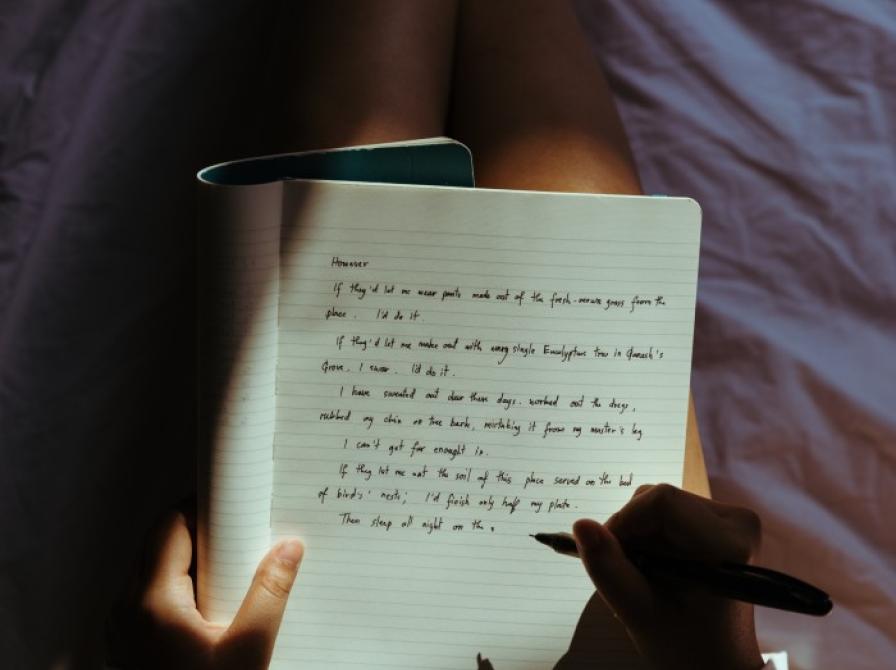 However
If they'd let me wear pants made out of the fresh-menure grass from the
place. I'd do it.
If they'd let me make out with every single Eucalyptus tree in Ganesh's
Grove, I swear. I'd do it.
I have sweated out dew these days. worked out the dregs,
rubbed my chin on tree bark, mistaking it from my master's leg
I can't get far enought in.
If they let me eat the soil of this place served on the bed
of bird's' nests; I'd finish only half my plate.
Then sleep all night on the